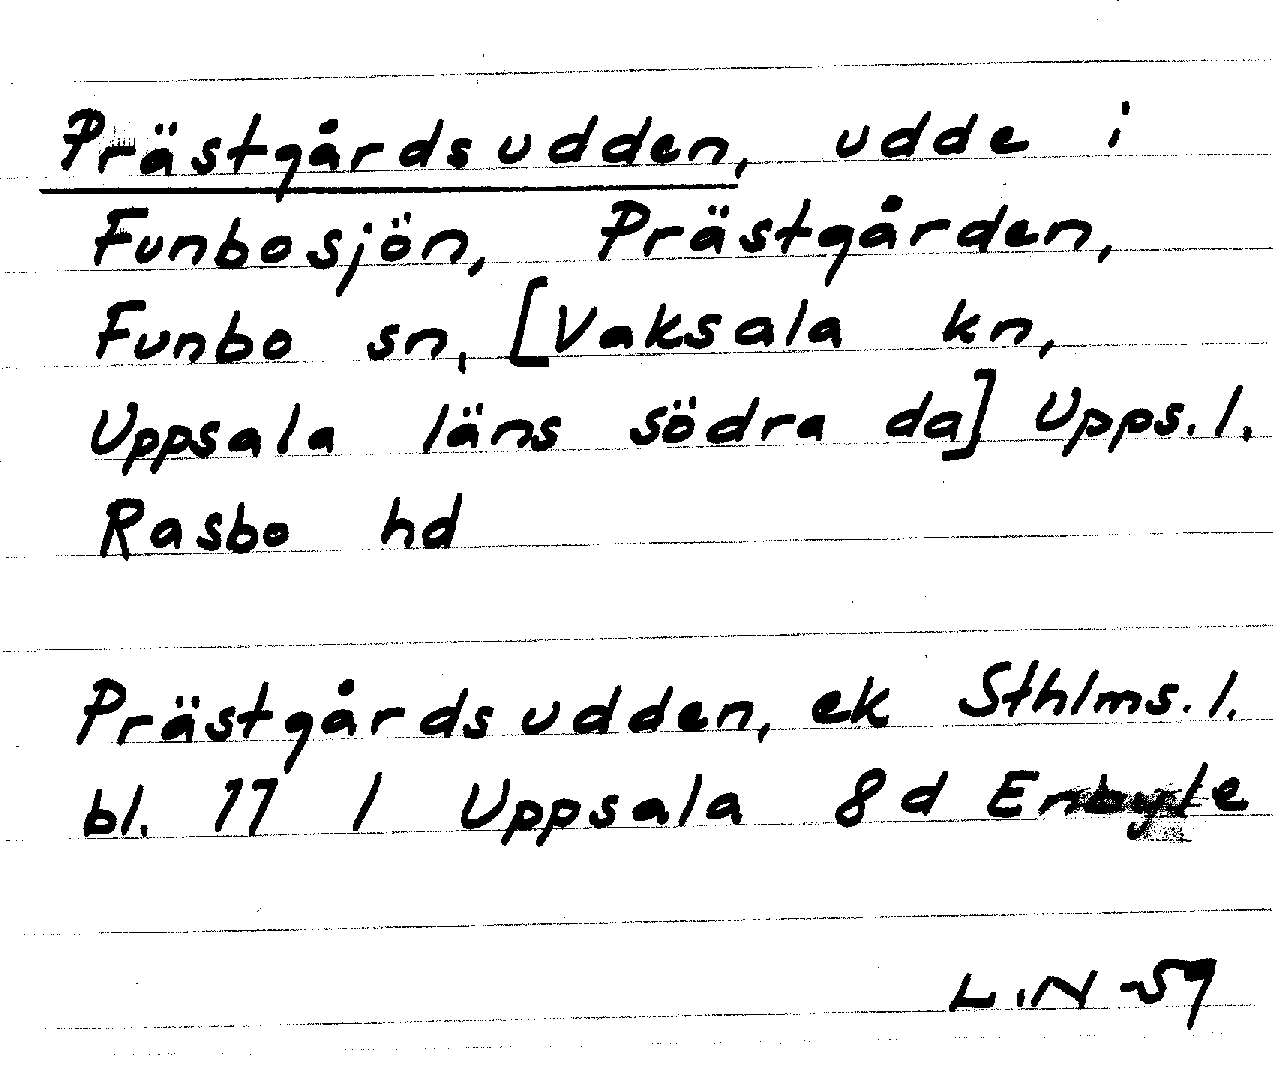 Prästgårdsudden, udde i
Funbosjön, Prästgården,
Funbo sn, [Vaksala kn,
Uppsala läns södra da] Upps. l.
Rasbo hd
Prästgårdsudden, ek Sthlms. l.
bl. 77 1 Uppsala 8d
L.N -59